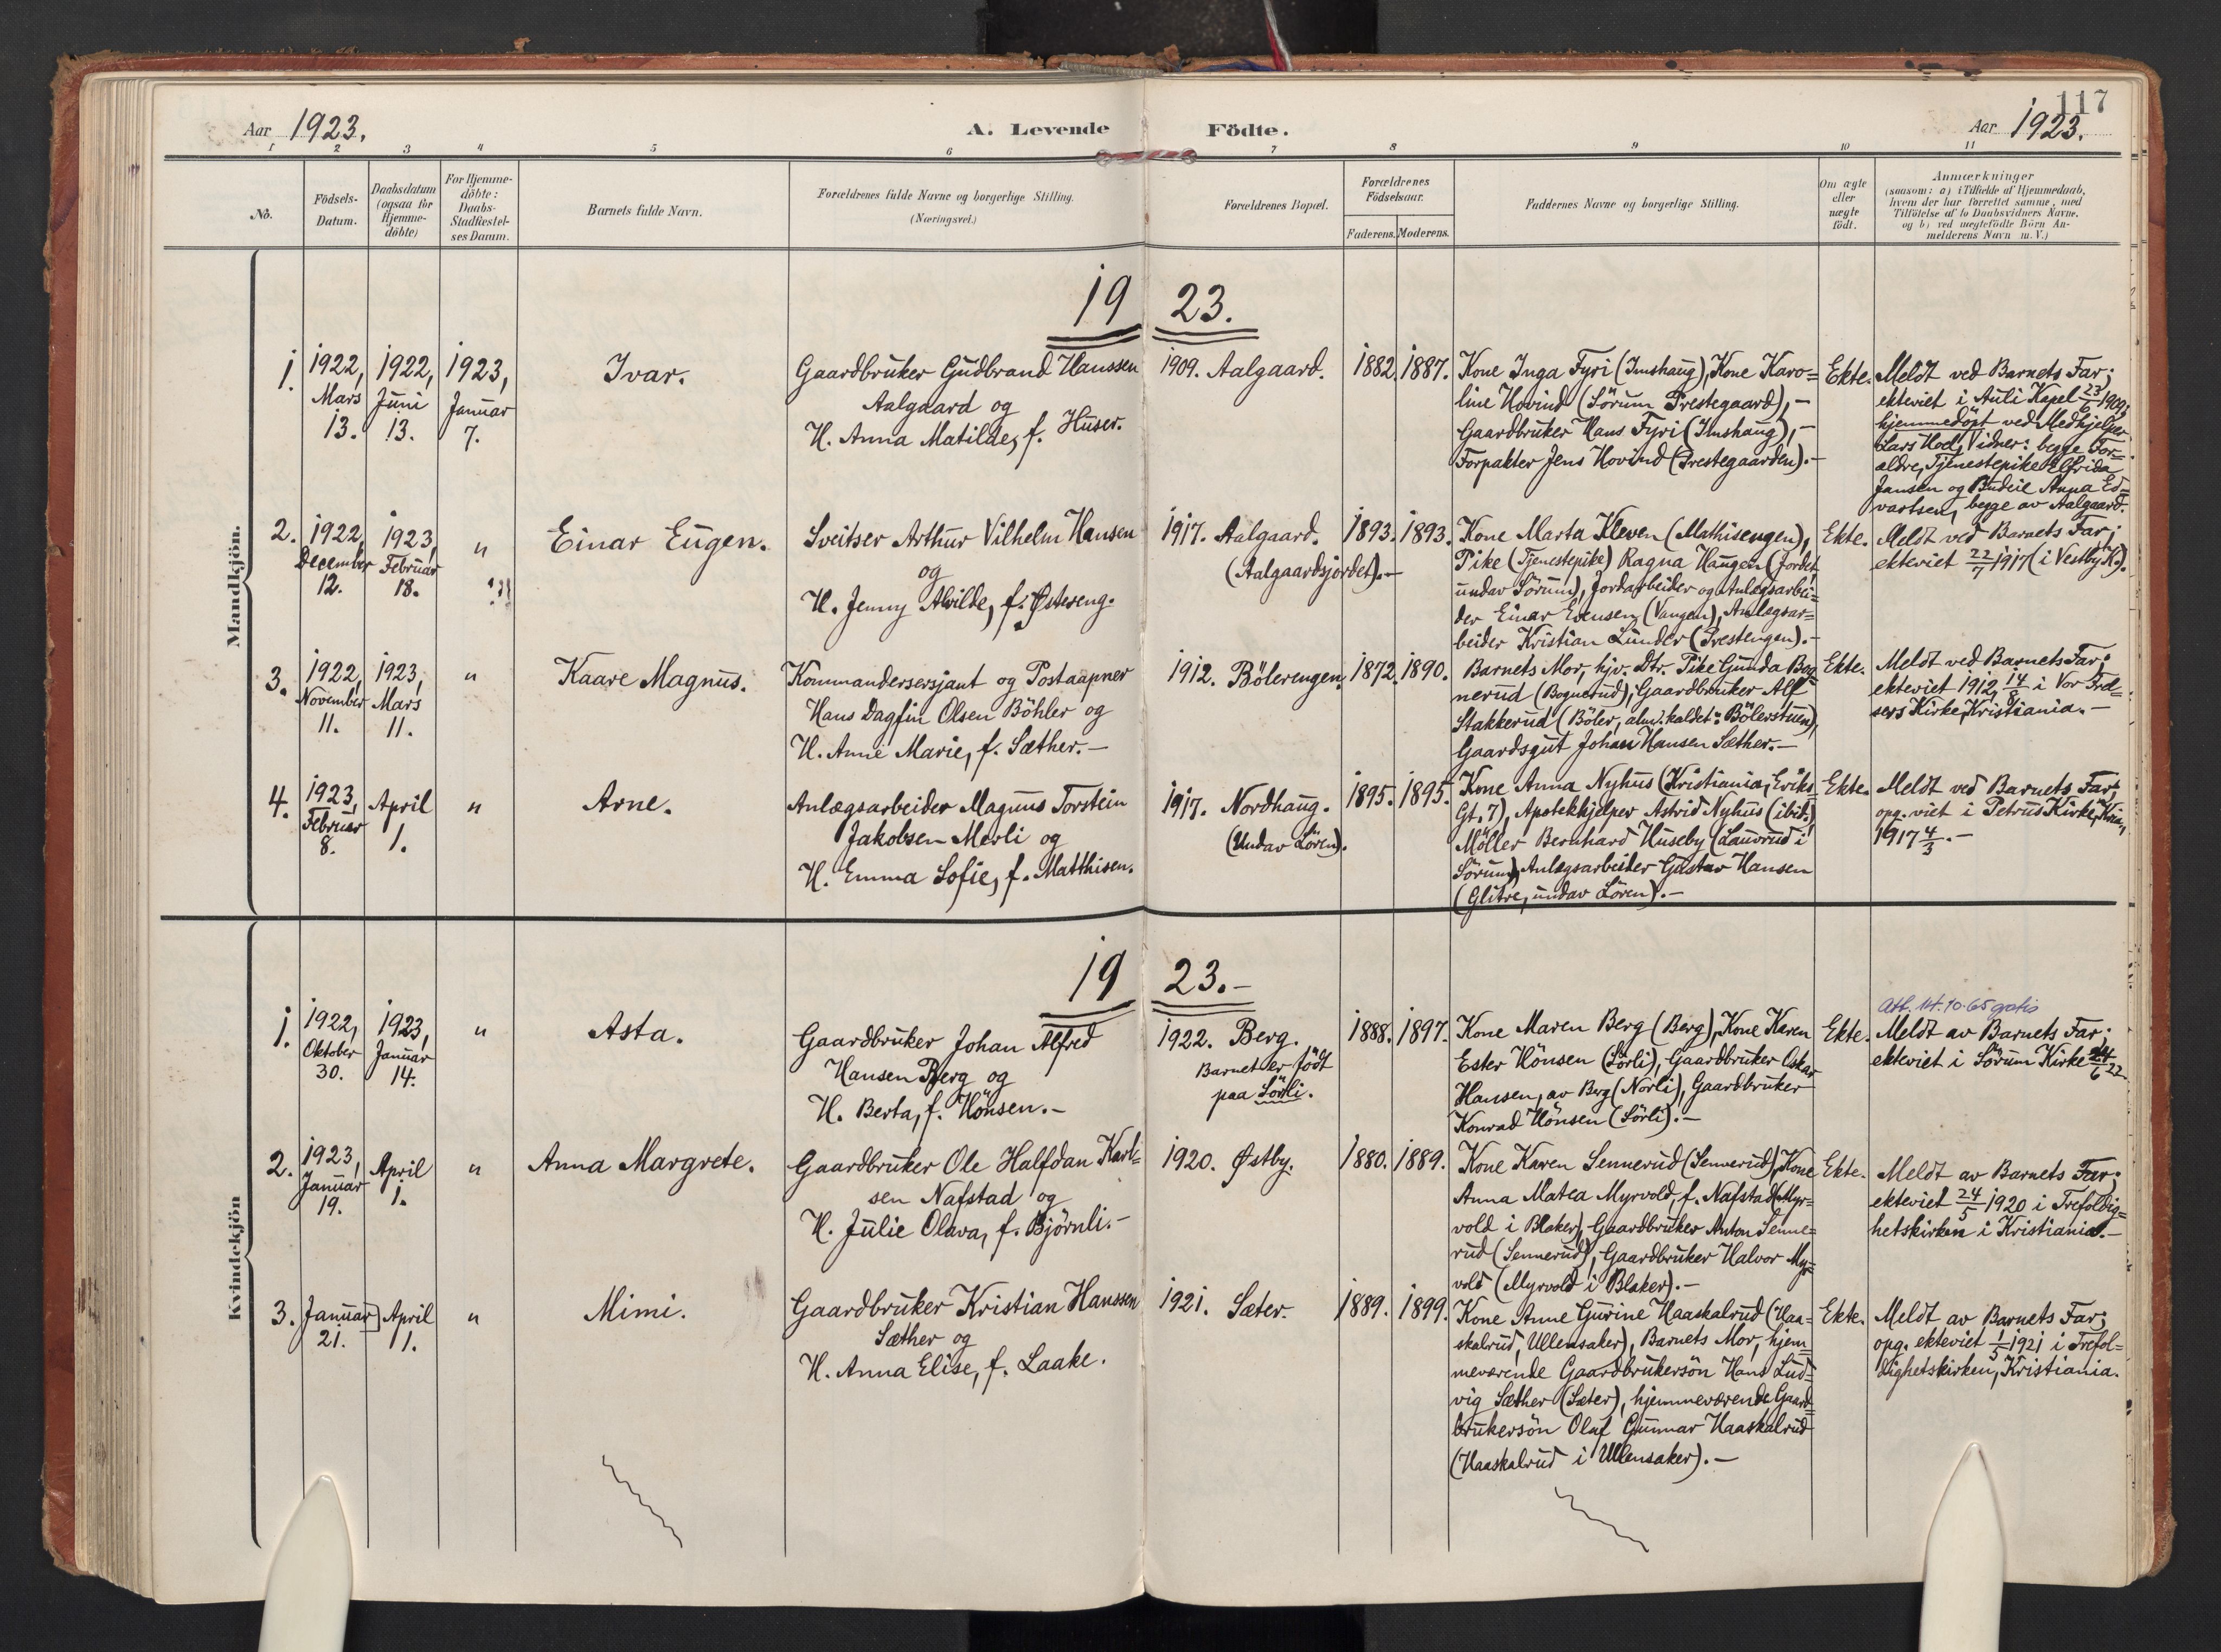 117
Aar 1923.
A. Levende Födte.
Aar 1923.
1 2 3 4 5 6 7 8 9 10 11
No.
Födsels-
Datum.
Daabsdatum
(ogsaa for
Hjemme-
döbte)
For Hjemme-
döbte:
Daabs-
Stadfæstel-
ses Datum.
Barnets fulde Navn.
Forældrenes fulde Navne og borgerlige Stilling.
(Næringsvei.)
Forældrenes Bopæl.
Forældrenes
Födselsaar.
Faderens. Moderens.
Faddernes Navne og borgerlige Stilling.
Om ægte
eller
uægte
födt.
Anmærkninger
(saasom: a) i Tilfælde af Hjemmedaab,
hvem der har forrettet samme, med
Tilföielse af to Daabsvidners Navne.
og b) ved uægtefödte Börn An-
melderens Navn m. V.)
Mandkjön.
1923.
1.
1922,
Mars
13.
1922,
Juni
13.
1923,
Januar
7.
Ivar.
Gaardbruker Gudbrand Hanssen
Aalgaard og
H. Anna Matilde, f. Huser.
1909. Aalgaard.
1882. 1887.
Kone Inga Fyri (Imshaug), Kone Karo=
line Hovind (Sörum Prestegaard), —
Gaardbruker Hans Fyri (Imshaug), —
Forpakter Jens Hovind (Prestegaarden). —
Ekte.
Meldt ved Barnets Far;
ekteviet i Auli Kapel 23/6 1909;
hjemmedöpt ved Medhjelper
Lars Hoel; Vidner: begge For=
ældre, Tjenestepike Elfrida
Jansen og Budeie Anna Ed=
vartsen, begge av Aalgaard.
2.
1922,
December
12.
1923,
Februar
18.
"
Einar Eugen.
Sveitser Arthur Vilhelm Hansen
og
H. Jenny Alvilde, f. Østereng.
1917. Aalgaard.
(Aalgaardsjordet). —
1893. 1893.
Kone Marta Kleven (Mathisengen),
Pike (Tjenestepike) Ragna Haugen (Jordet
undav Sörum), Jordarbeider og Anlægsarbei=
der Einar Evensen (Vangen), Anlægsar=
beider Kristian Lunder (Prestengen). —
Ekte.
Meldt ved Barnets Far;
ekteviet 22/7 1917 (i Vestby K.).
3.
1922,
November
11.
1923,
Mars
11.
"
Kaare Magnus.
Kommandersersjant og Postaapner
Hans Dagfin Olsen Böhler og
H. Anne Marie, f. Sæther. —
1912. Bölerengen.
1872. 1890.
Barnets Mor, hjv. Dtr. Pike Gunda Bog=
nerud (Bognerud), Gaardbruker Alf
Stakkerud (Böler, alm. kaldet: Bölerstuen),
Gaardsgut Johan Hansen Sæther. —
Ekte.
Meldt ved Barnets Far;
ekteviet 1912 14/8 i Vor Frel=
sers Kirke, Kristiania. —
4.
1923,
Februar
8.
April
1.
"
Arne.
Anlægsarbeider Magnus Torstein
Jakobsen Merli og
H. Emma Sofie, f. Matthisen.
1917. Nordhaug.
(Undav Lören).
1895. 1895.
Kone Anna Nyhus (Kristiania, Eriks
Gt. 7), Apotekhjelper Astrid Nyhus (ibid.),
Möller Bernhard Huseby (Lauvrud i
Sörum), Anlægsarbeider Gustav Hansen
(Glitre, undav Lören). —
Ekte.
Meldt ved Barnets Far;
opg. viet i Petrus Kirke, Kria,
1917 4/3. —
Kvindekjön
1923. —
1.
1922,
Oktober
30.
1923,
Januar
14.
"
Asta.
Gaardbruker Johan Alfred
Hansen Berg og
H. Berta, f. Hönsen. —
1922. Berg.
Barnet er födt
paa Sörli.
1888. 1897.
Kone Maren Berg (Berg), Kone Karen
Ester Hönsen (Sörli), Gaardbruker Oskar
Hansen, av Berg (Norli), Gaardbruker
Konrad Hönsen (Sörli). —
Ekte.
Att. 14.10.65 gratis
Meldt av Barnets Far;
ekteviet i Sörum Kirke 24/6 22
2.
1923,
Januar
19.
April
1.
"
Anna Margrete.
Gaardbruker Ole Halfdan Karl=
sen Nafstad og
H. Julie Olava, f. Björnli. —
1920. Østby.
1880. 1889.
Kone Karen Sennerud (Sennerud), Kone
Anna Matea Myrvold, f. Nafstad (Myr=
vold i Blaker), Gaardbruker Anton Senne=
rud (Sennerud), Gaardbruker Halvor Myr=
vold (Myrvold i Blaker). —
Ekte.
Meldt av Barnets Far;
ekteviet 24/5 1920 i Trefoldig=
hetskirken i Kristiania. —
3.
Januar
21.
April
11.
"
Mimi.
Gaardbruker Kristian Hanssen
Sæther og
H. Anna Elise, f. Laake.
1921. Sæter.
1889. 1899.
Kone Anne Gurine Haaskalrud (Haa=
skalrud, Ullensaker), Barnets Mor, hjem=
meværende Gaardbrukersön Hans Lud=
vig Sæther (Sæter), hjemmeværende Gaard=
brukersön Olaf Gunnar Haaskalrud
(Haaskalrud i Ullensaker). —
Ekte.
Meldt av Barnets Far;
opg. ekteviet 1/5 1921 i Trefol=
dighetskirken, Kristiania.